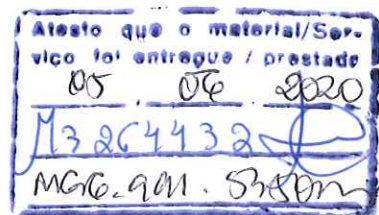 Atesto que o material/Ser-
viço foi entregue / prestado
05 06 2020
M3264432